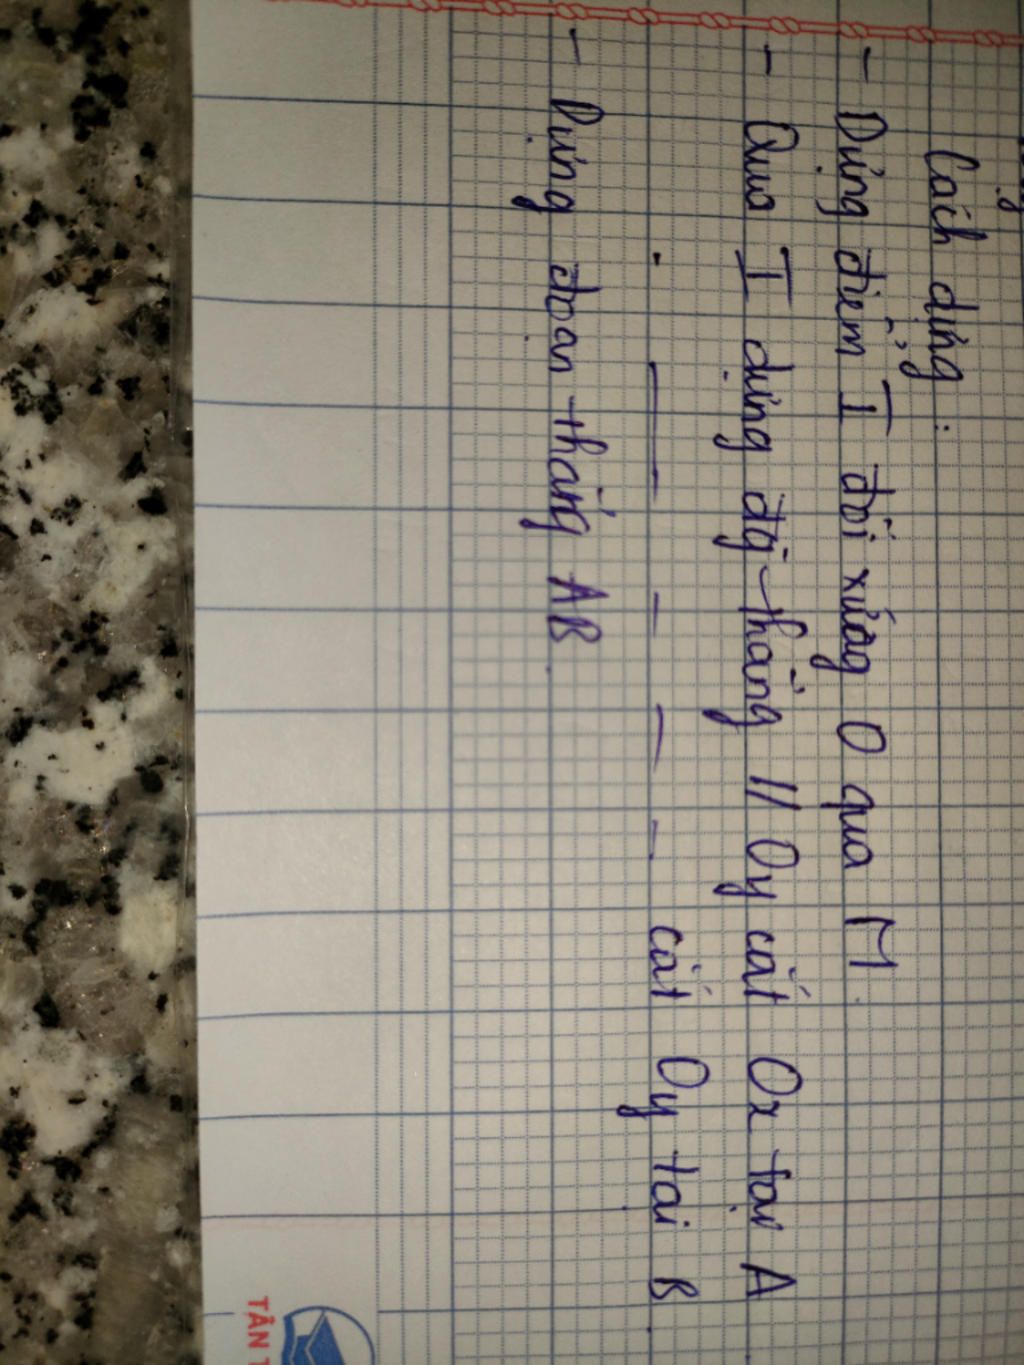 Cách dựng:
- Dựng điểm I đối xứng O qua M.
- Qua I dựng đg thẳng // Oy cắt Ox tại A
. — - — - cắt Oy tại B.
- Dựng đoạn thẳng AB.
TÂN